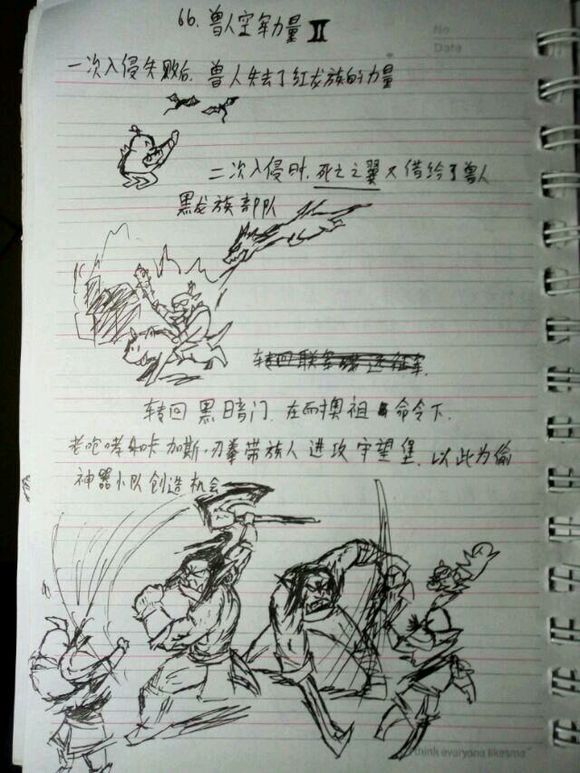 66. 兽人空军力量 II
No
Date
一次入侵失败后, 兽人失去了红龙族的力量
二次入侵时, 死亡之翼又借给了兽人
黑龙族部队
转回联军 远征军.
转回 黑暗门, 在耐奥祖 命令下.
老咆哮和卡加斯·刃拳带族人进攻守望堡, 以此为偷
神器小队创造机会
think everyone likesme